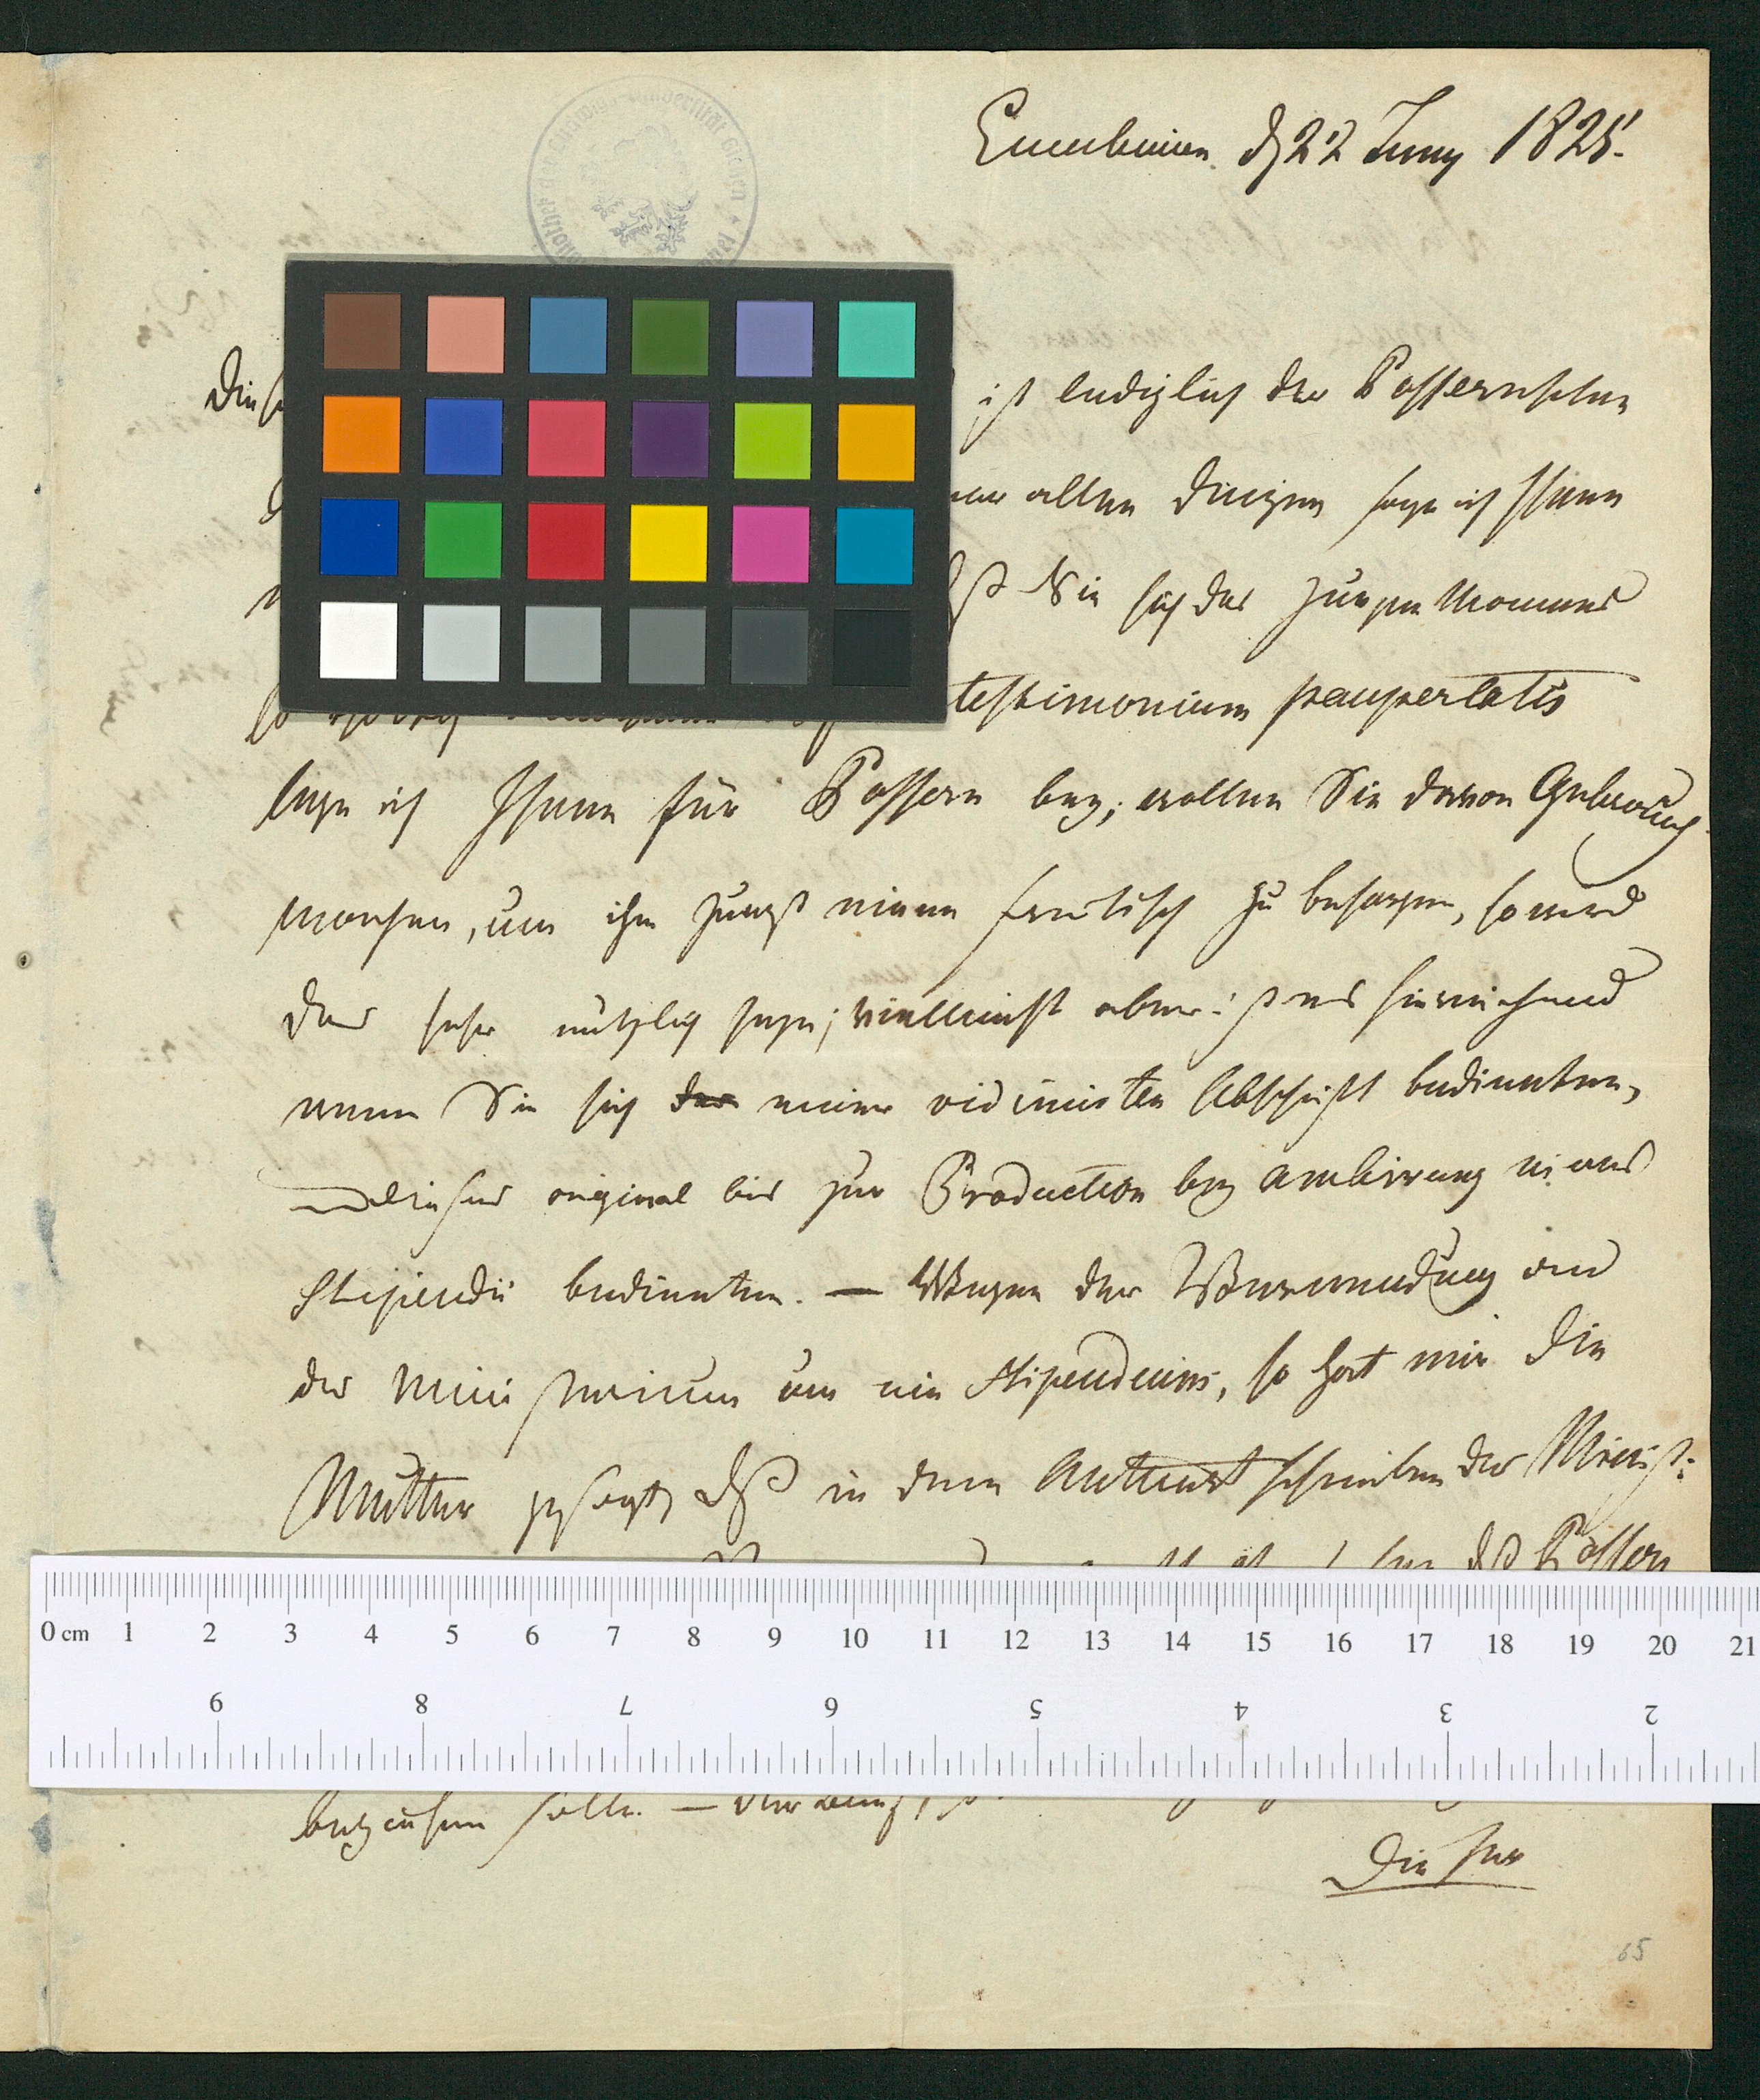 Gumbinnen d 22 Juny 1825.
ist lediglich der Possernschen
allen Dingen sage ich Ihnen
Sie sich des jungen Mannes
testimonium paupertatis
lege ich Ihnen für Possern bey; wollen Sie davon Gebrauch
machen, um ihm zuerst einen freitisch zu besorgen, so wird
das sehr nützlich seyn; vielleicht aber ist es hinreichend
wenn Sie sich der einer vidimirten Abschrift bedienten,
dieses original bis zur Production bey ambirung eines
Stipendii bedienten. — Wegen der Verwendung an
das Ministerium um ein Stipendium, so hat mir die
Mutter gesagt, dß in dem Antwortschreiben des Minist:
dß Possern
beziehen solle. —
Dieses
0 cm 1 2 3 4 5 6 7 8 9 10 11 12 13 14 15 16 17 18 19 20 21
9 8 7 6 5 4 3 2
65